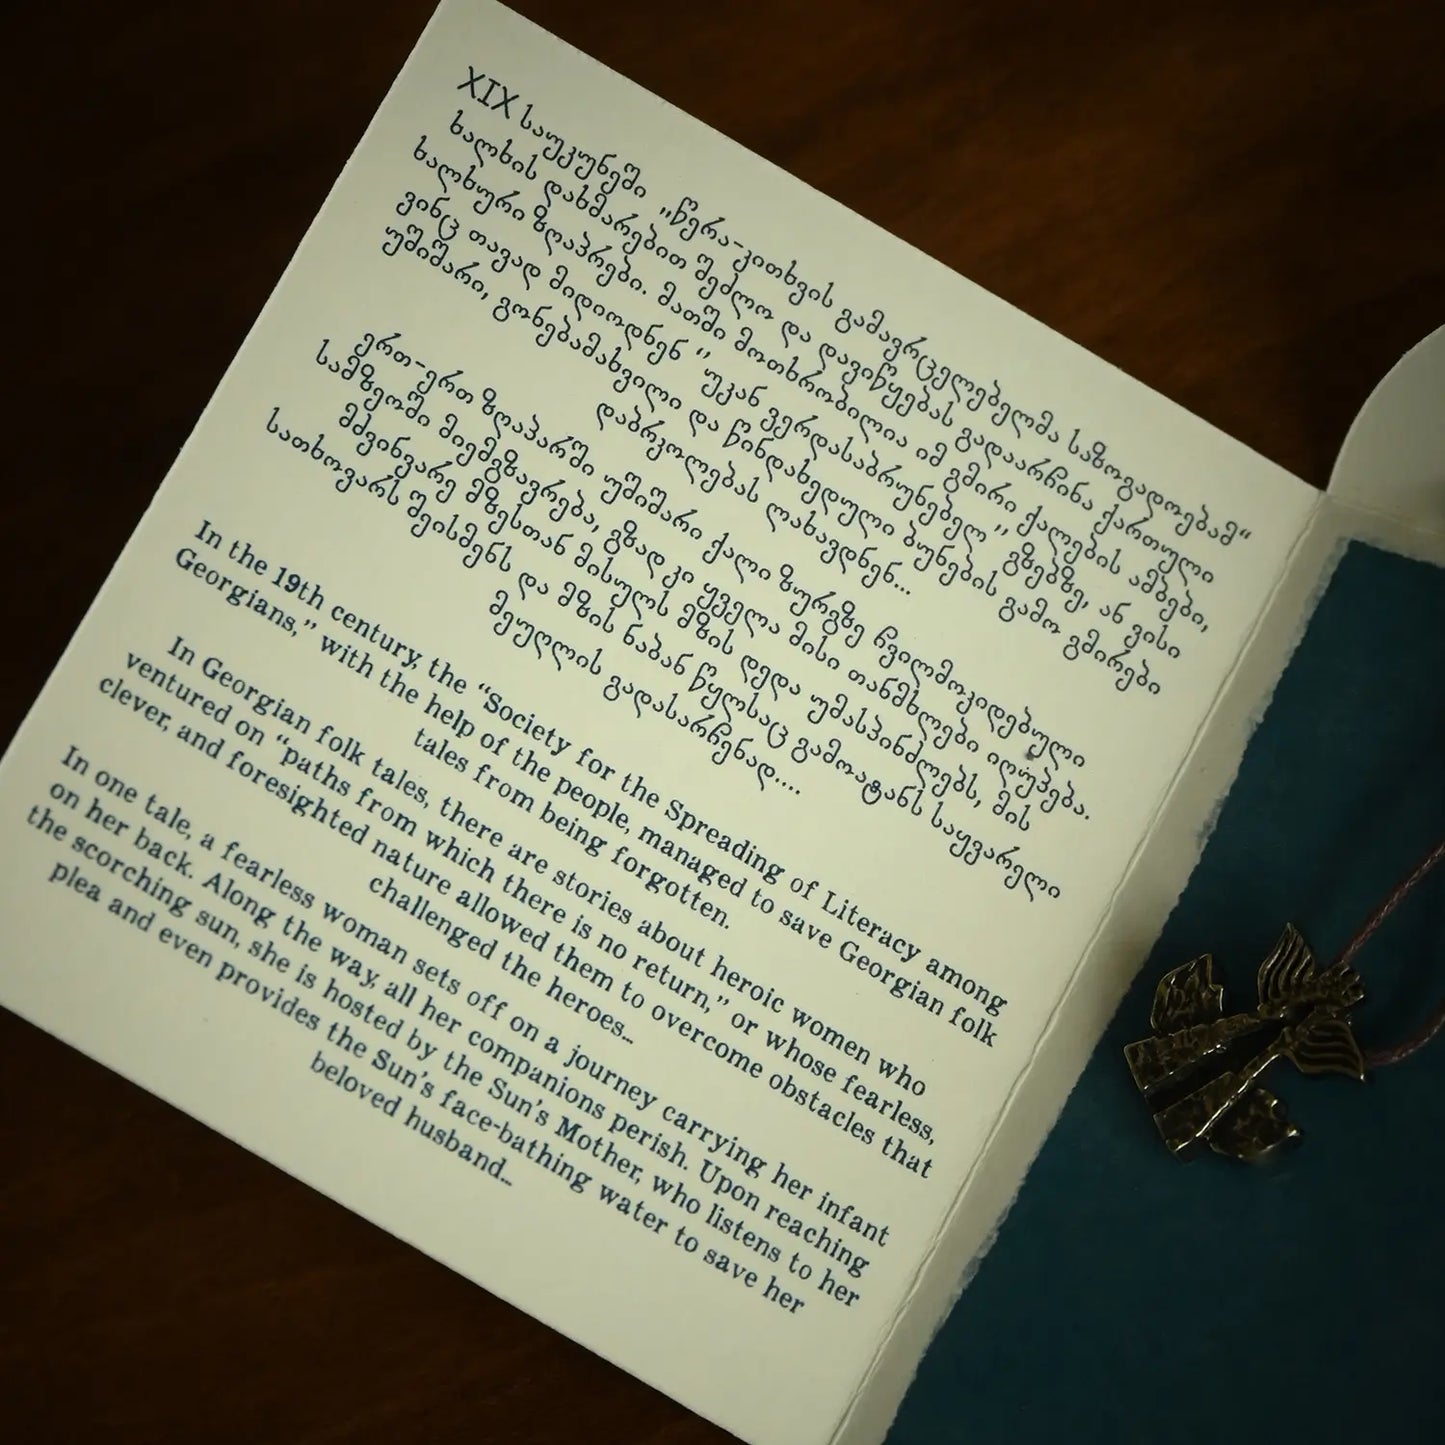 XIX საუკუნეში „წერა-კითხვის გამავრცელებელმა საზოგადოებამ“
ხალხის დახმარებით შეძლო და დავიწყებას გადაარჩინა ქართული
ხალხური ზღაპრები. მათში მოთხრობილია იმ გმირი ქალების ამბები,
ვინც თავად მიდიოდნენ “უკან ვერდასაბრუნებელ” გზებზე, ან ვისი
უშიშარი, გონებამახვილი და წინდახედული ბუნების გამო გმირები
დაბრკოლებას ლახავდნენ...
ერთ-ერთ ზღაპარში უშიშარი ქალი ზურგზე ჩვილმოკიდებული
სამზეოში მიემგზავრება, გზად კი ყველა მისი თანმხლები იღუპება.
მძვინვარე მზესთან მისულს მზის დედა უმასპინძლებს, მის
სათხოვარს შეისმენს და მზის ნაბან წყლსაც გამოატანს საყვარელი
მეუღლის გადასარჩენად....
In the 19th century, the “Society for the Spreading of Literacy among
Georgians,” with the help of the people, managed to save Georgian folk
tales from being forgotten.
In Georgian folk tales, there are stories about heroic women who
ventured on “paths from which there is no return,” or whose fearless,
clever, and foresighted nature allowed them to overcome obstacles that
challenged the heroes...
In one tale, a fearless woman sets off on a journey carrying her infant
on her back. Along the way, all her companions perish. Upon reaching
the scorching sun, she is hosted by the Sun’s Mother, who listens to her
plea and even provides the Sun’s face-bathing water to save her
beloved husband...